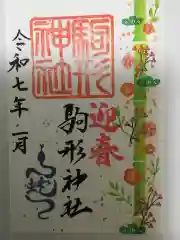 駒形神社
迎春
駒形神社
令和七年一月